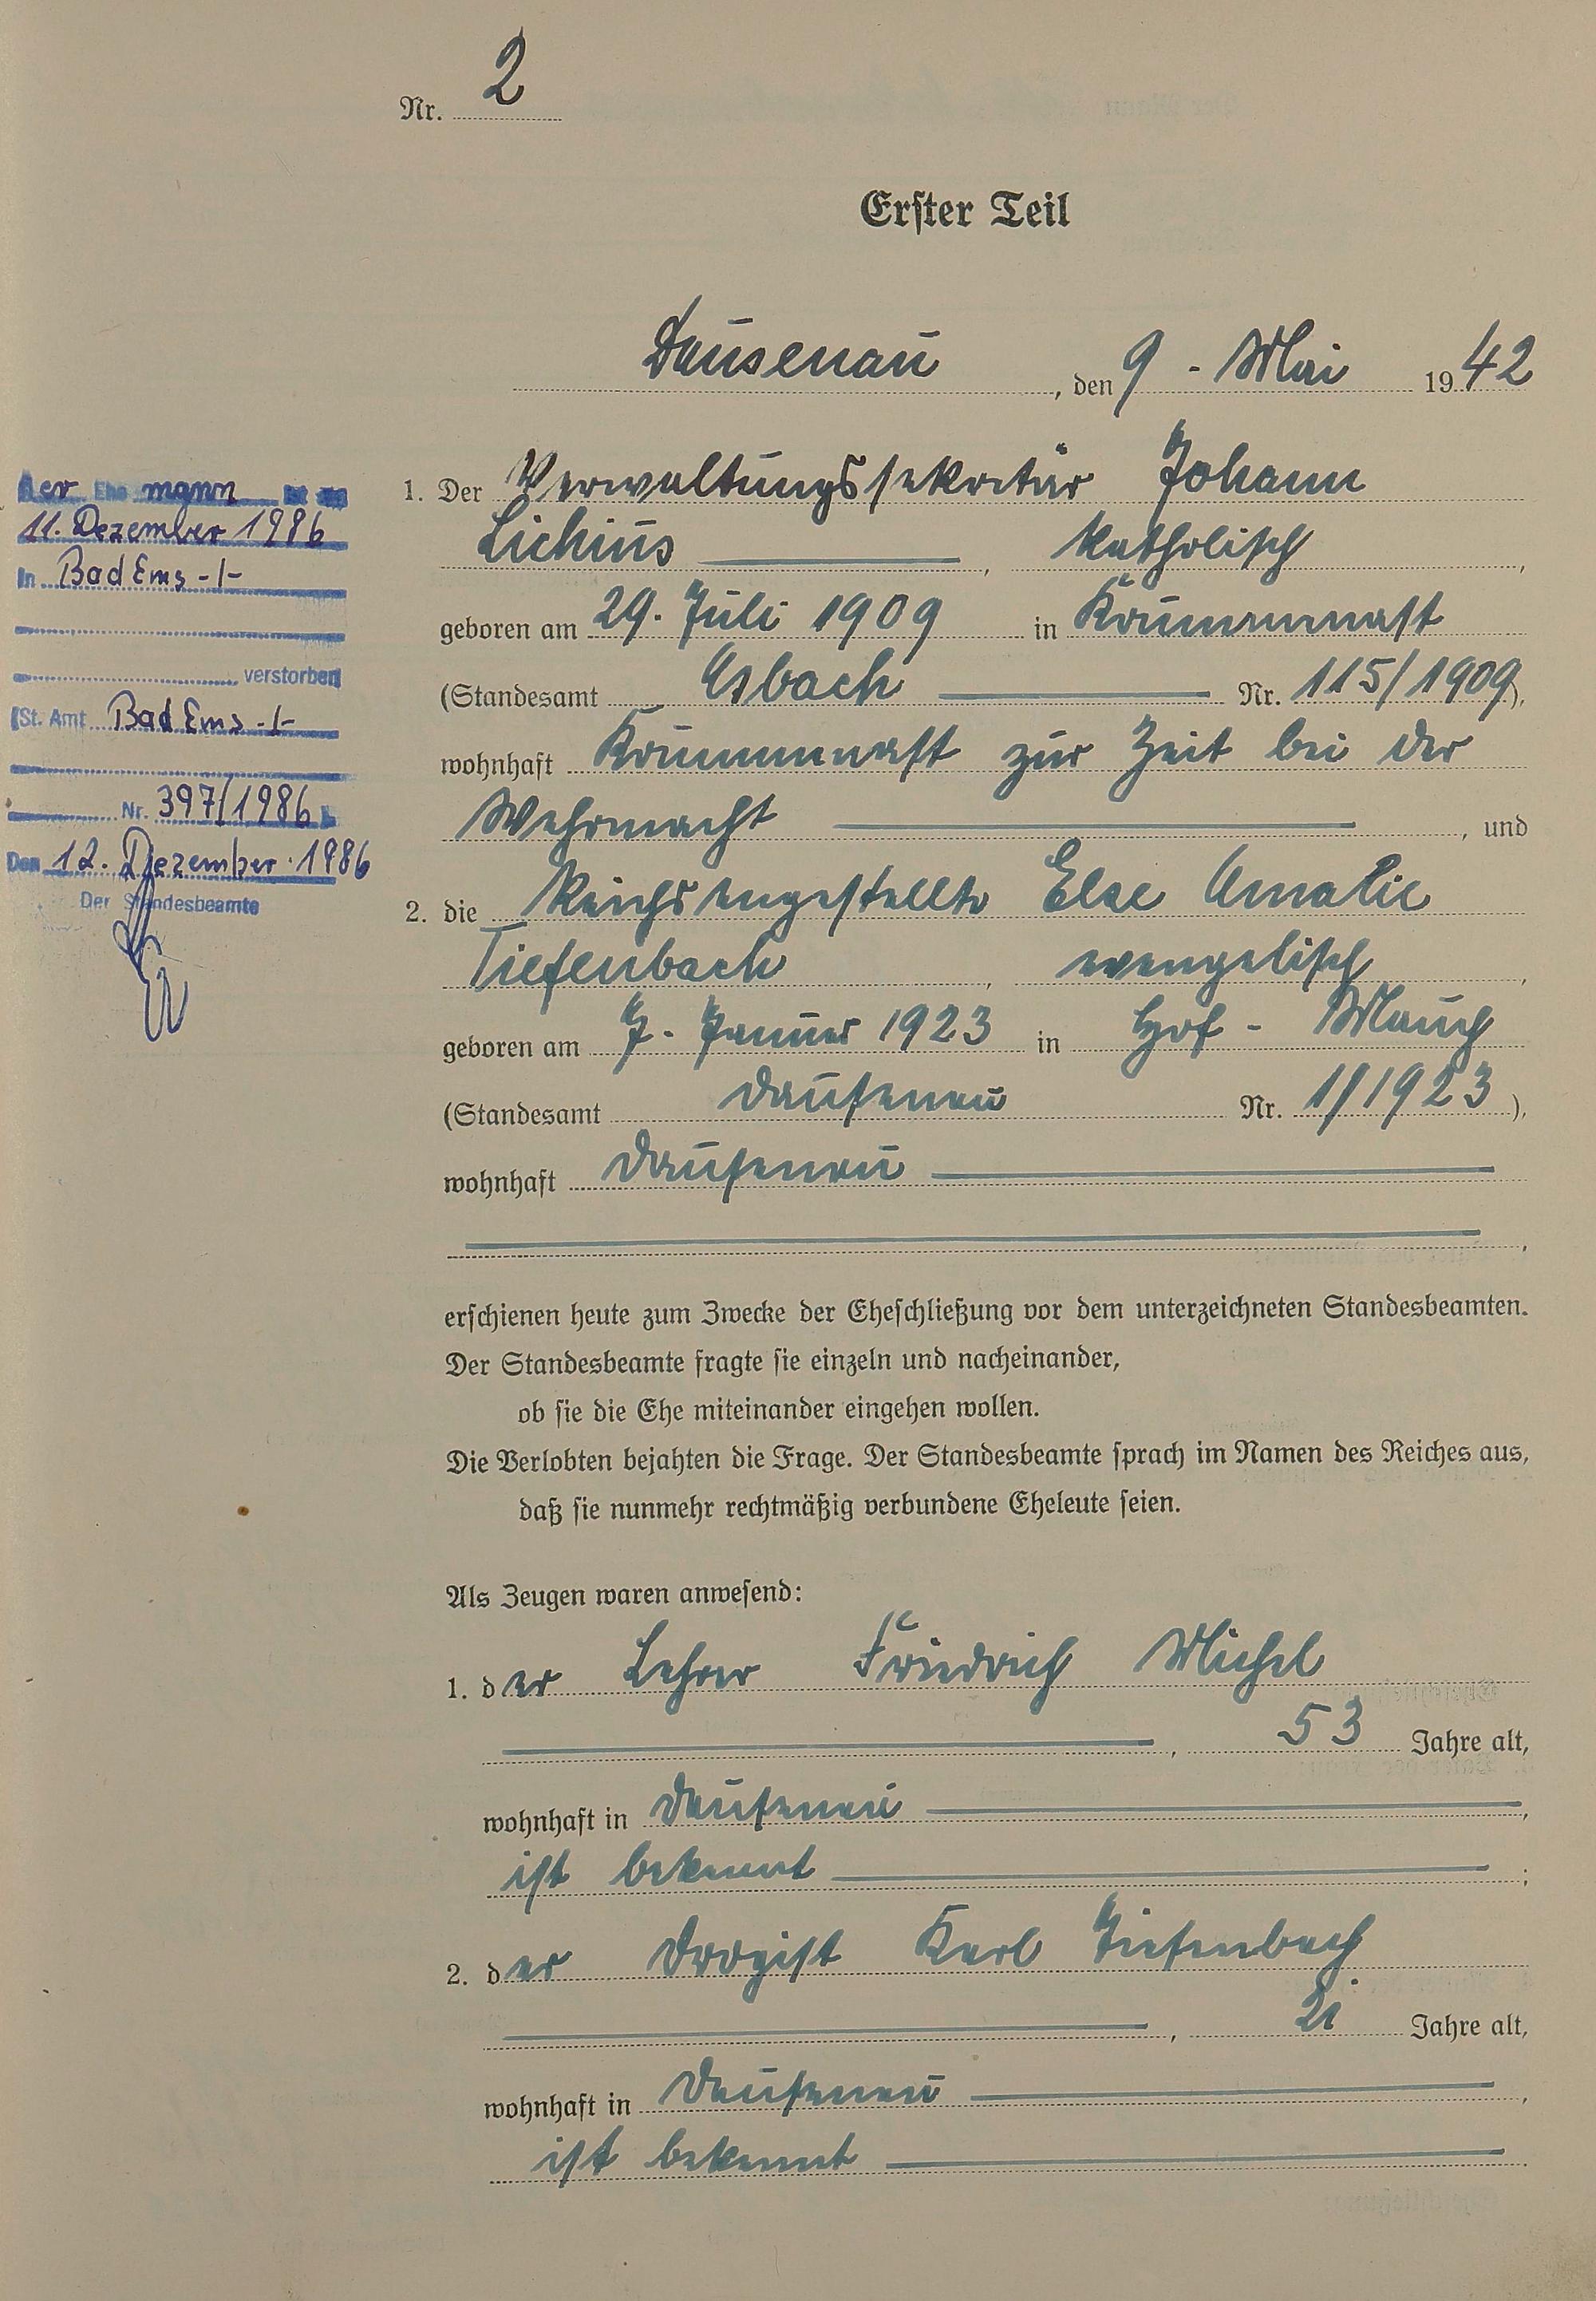 Nr. 2
Erster Teil
Dausenau, den 9. Mai 1942
1. Der Verwaltungssekretär Johann
Lichius, katholisch,
geboren am 29. Juli 1909 in Krummenast
(Standesamt Asbach Nr. 115/1909),
wohnhaft Krummenast zur Zeit bei der
Wehrmacht, und
2. die Reichsangestellte Else Amalie
Tiefenbach, evangelisch,
geboren am 7. Januar 1923 in Hof - Mauch
(Standesamt Dausenau Nr. 1/1923),
wohnhaft Dausenau
,
erschienen heute zum Zwecke der Eheschließung vor dem unterzeichneten Standesbeamten.
Der Standesbeamte fragte sie einzeln und nacheinander,
ob sie die Ehe miteinander eingehen wollen.
Die Verlobten bejahten die Frage. Der Standesbeamte sprach im Namen des Reiches aus,
daß sie nunmehr rechtmäßig verbundene Eheleute seien.
Als Zeugen waren anwesend:
1. der Lehrer Friedrich Michel
, 53 Jahre alt,
wohnhaft in Dausenau,
ist bekannt;
2. der Drogist Karl Tiefenbach
, 21 Jahre alt,
wohnhaft in Dausenau,
ist bekannt.
Der Ehemann ist am
11. Dezember 1986
In Bad Ems -/-
verstorben
(St. Amt Bad Ems -/-
Nr. 397/1986)
Den 12. Dezember 1986
Der Standesbeamte